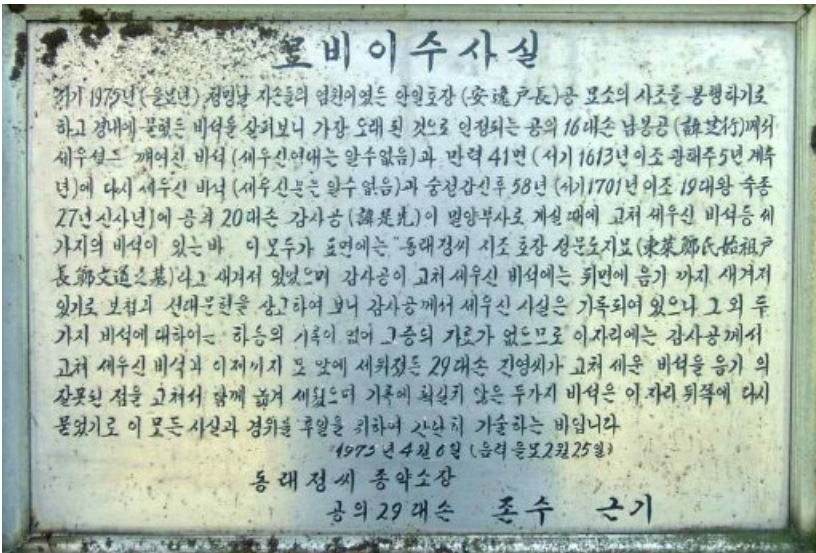 묘비이수사실
서기 1975년(을묘년) 청명날 자손들의 염원이였든 안일호장(安逸戶長)공 묘소의 사초를 봉행하기로
하고 경내에 묻혔든 비석을 살펴보니 가장 오래 된 것으로 인정되는 공의 16대손 남봉공(諱芝行)께서
세우셨든 깨어진 비석(세우신연대는 알수없음)과 만력 41면(서기 1613년 이조 광해주 5년 계축
년)에 다시 세우신 비석(세우신분는 알수 없음)과 숭정갑신후 58년(서기1701년 이조 19대왕 숙종
27년 신사년)에 공의 20대손 감사공(諱是先)이 밀양부사로 계실 때에 고쳐 세우신 비석등 세
가지의 비석이 있는바 이 모두가 표면에는 "동래정씨 시조 호장 정문도지묘(東萊鄭氏始祖戶
長鄭文道之墓)라고 새겨저 있었으며 감사공이 고쳐 세우신 비석에는 뒤면에 음기 까지 새겨저
있기로 보첩과 선대문헌을 상고하여 보니 감사공께서 세우신 사실은 기록되여 있으나 그 외 두
가지 비석에 대하여는 하등의 기록이 없어 고증의 가료가 없으므로 이자리에는 감사공께서
고쳐 세우신 비석과 이제까지 묘 앞에 세워졌든 29대손 진영씨가 고쳐 세운 비석을 음기 의
잘못된 점을 고쳐서 함께 옮겨 세웠으며 기록에 확실치 않은 두가지 비석은 이 자리 뒤쪽에 다시
묻었기로 이 모든 사실과 경위를 후일을 위하여 간단히 기술하는 바입니다
1975년 4월 6일 (음력 을묘2월 25일)
동래정씨 종약소장
공의 29대손 존수 근기